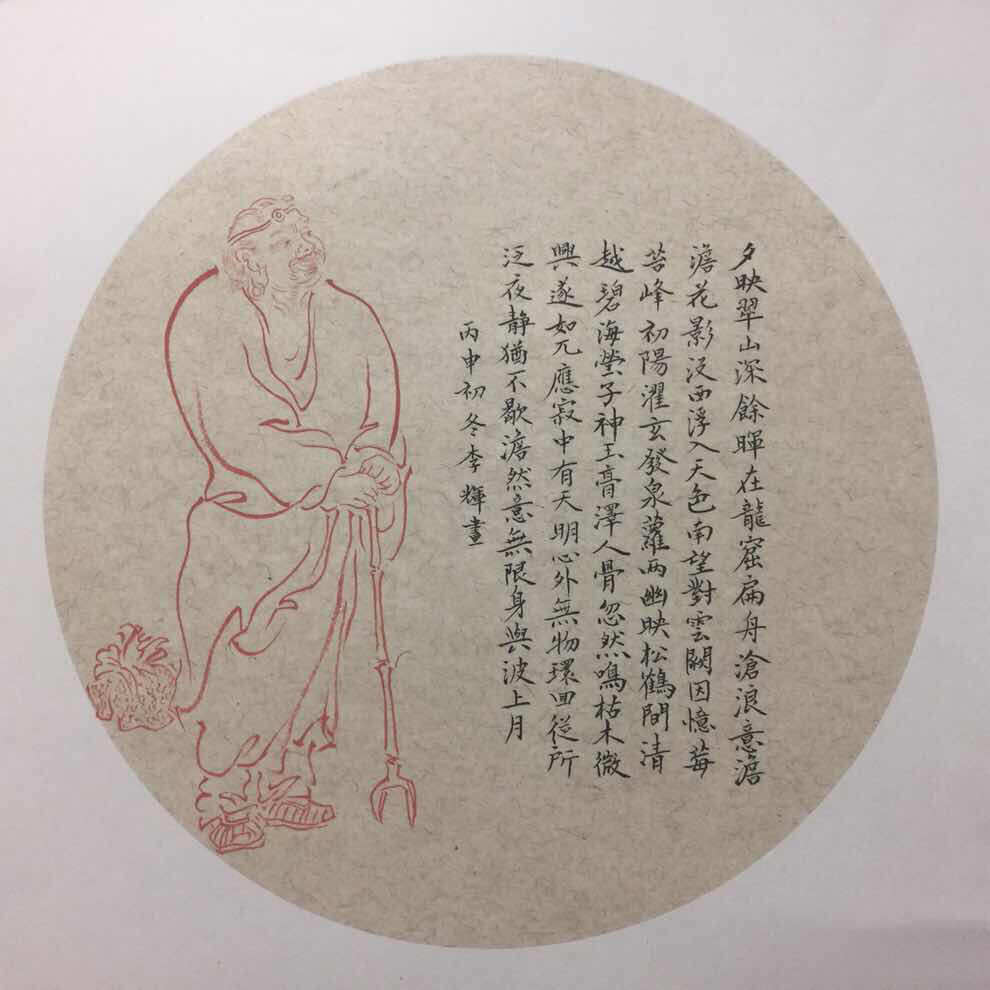 夕映翠山深餘暉在龍窟扁舟滄浪意澹
澹花影沒西浮入天色南望對雲闕因憶莓
苔峰初陽濯玄發泉蘿兩幽映松鶴間清
越碧海瑩子神玉膏澤人骨忽然鳴枯木微
興遂如兀應寂中有天明心外無物環回從所
泛夜靜猶不歇澹然意無限身與波上月
丙申初冬李輝畫